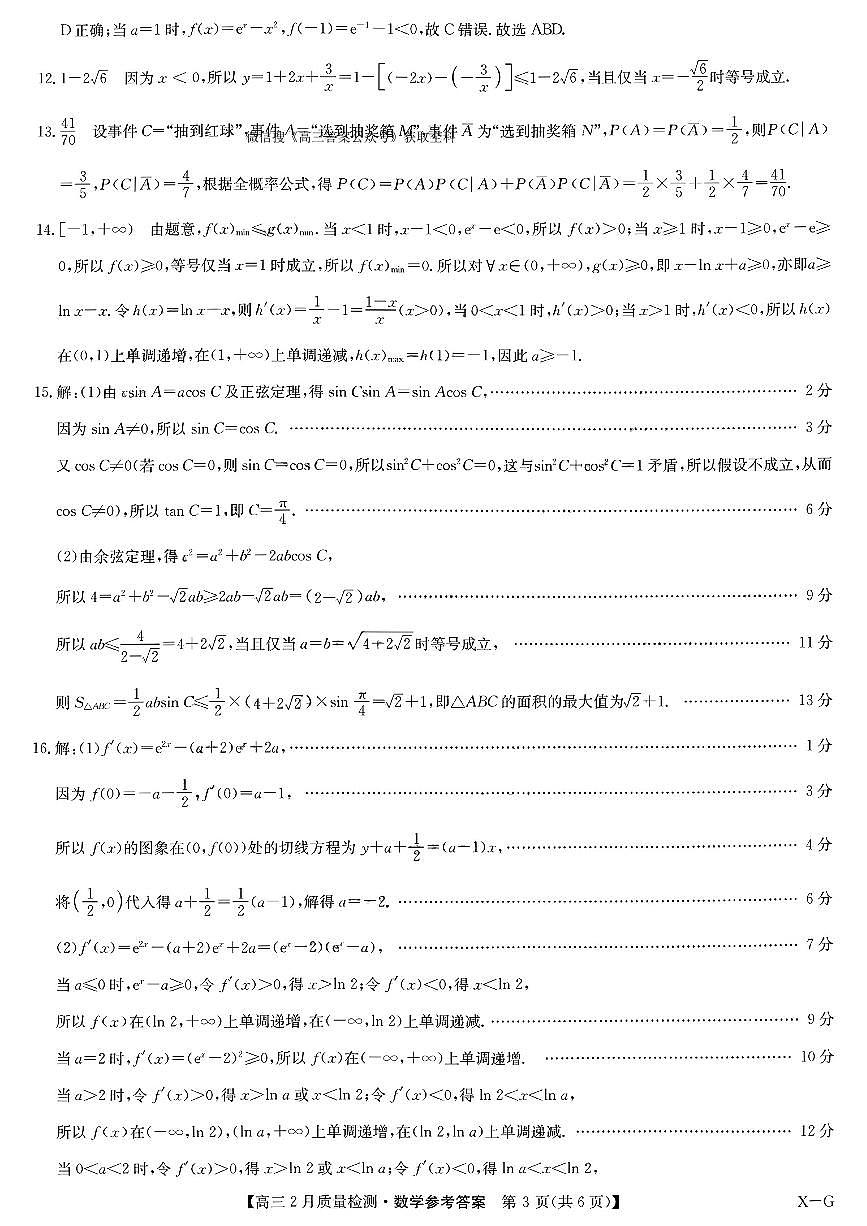 D正确;当a=1时,f(x)=eˣ−x²,f(−1)=e⁻¹−1<0,故C错误.故选ABD.
12. 1−2√6 因为x<0,所以y=1+2x+3/x=1−[(−2x)−(−3/x)]≤1−2√6,当且仅当x=−√6/2时等号成立.
13. 41/70 设事件C=“抽到红球”,事件A=“选到抽奖箱M”,事件A̅为“选到抽奖箱N”,P(A)=P(A̅)=1/2,则P(C|A)
=3/5,P(C|A̅)=4/7,根据全概率公式,得P(C)=P(A)P(C|A)+P(A̅)P(C|A̅)=1/2×3/5+1/2×4/7=41/70.
14. [−1,+∞) 由题意,f(x)min≤g(x)min.当x<1时,x−1<0,eˣ−e<0,所以f(x)>0;当x≥1时,x−1≥0,eˣ−e≥
0,所以f(x)≥0,等号仅当x=1时成立,所以f(x)min=0.所以对∀x∈(0,+∞),g(x)≥0,即x−ln x+a≥0,亦即a≥
ln x−x.令h(x)=ln x−x,则h′(x)=1/x−1=(1−x)/x(x>0),当0<x<1时,h′(x)>0;当x>1时,h′(x)<0,所以h(x)
在(0,1)上单调递增,在(1,+∞)上单调递减,h(x)max=h(1)=−1,因此a≥−1.
15. 解:(1)由csin A=acos C及正弦定理,得sin Csin A=sin Acos C,…… 2分
因为sin A≠0,所以sin C=cos C. …… 3分
又cos C≠0(若cos C=0,则sin C=cos C=0,所以sin²C+cos²C=0,这与sin²C+cos²C=1矛盾,所以假设不成立,从而
cos C≠0),所以tan C=1,即C=π/4. …… 6分
(2)由余弦定理,得c²=a²+b²−2abcos C,
所以4=a²+b²−√2ab≥2ab−√2ab=(2−√2)ab, …… 9分
所以ab≤4/(2−√2)=4+2√2,当且仅当a=b=√(4+2√2)时等号成立, …… 11分
则S△ABC=1/2absin C≤1/2×(4+2√2)×sin π/4=√2+1,即△ABC的面积的最大值为√2+1. …… 13分
16. 解:(1)f′(x)=e²ˣ−(a+2)eˣ+2a,…… 1分
因为f(0)=−a−1/2,f′(0)=a−1, …… 3分
所以f(x)的图象在(0,f(0))处的切线方程为y+a+1/2=(a−1)x,…… 4分
将(1/2,0)代入得a+1/2=1/2(a−1),解得a=−2. …… 6分
(2)f′(x)=e²ˣ−(a+2)eˣ+2a=(eˣ−2)(eˣ−a), …… 7分
当a≤0时,eˣ−a≥0,令f′(x)>0,得x>ln 2;令f′(x)<0,得x<ln 2,
所以f(x)在(ln 2,+∞)上单调递增,在(−∞,ln 2)上单调递减. …… 9分
当a=2时,f′(x)=(eˣ−2)²≥0,所以f(x)在(−∞,+∞)上单调递增. …… 10分
当a>2时,令f′(x)>0,得x>ln a或x<ln 2;令f′(x)<0,得ln 2<x<ln a,
所以f(x)在(−∞,ln 2),(ln a,+∞)上单调递增,在(ln 2,ln a)上单调递减. …… 12分
当0<a<2时,令f′(x)>0,得x>ln 2或x<ln a;令f′(x)<0,得ln a<x<ln 2,
【高三2月质量检测·数学参考答案 第3页(共6页)】 X−G